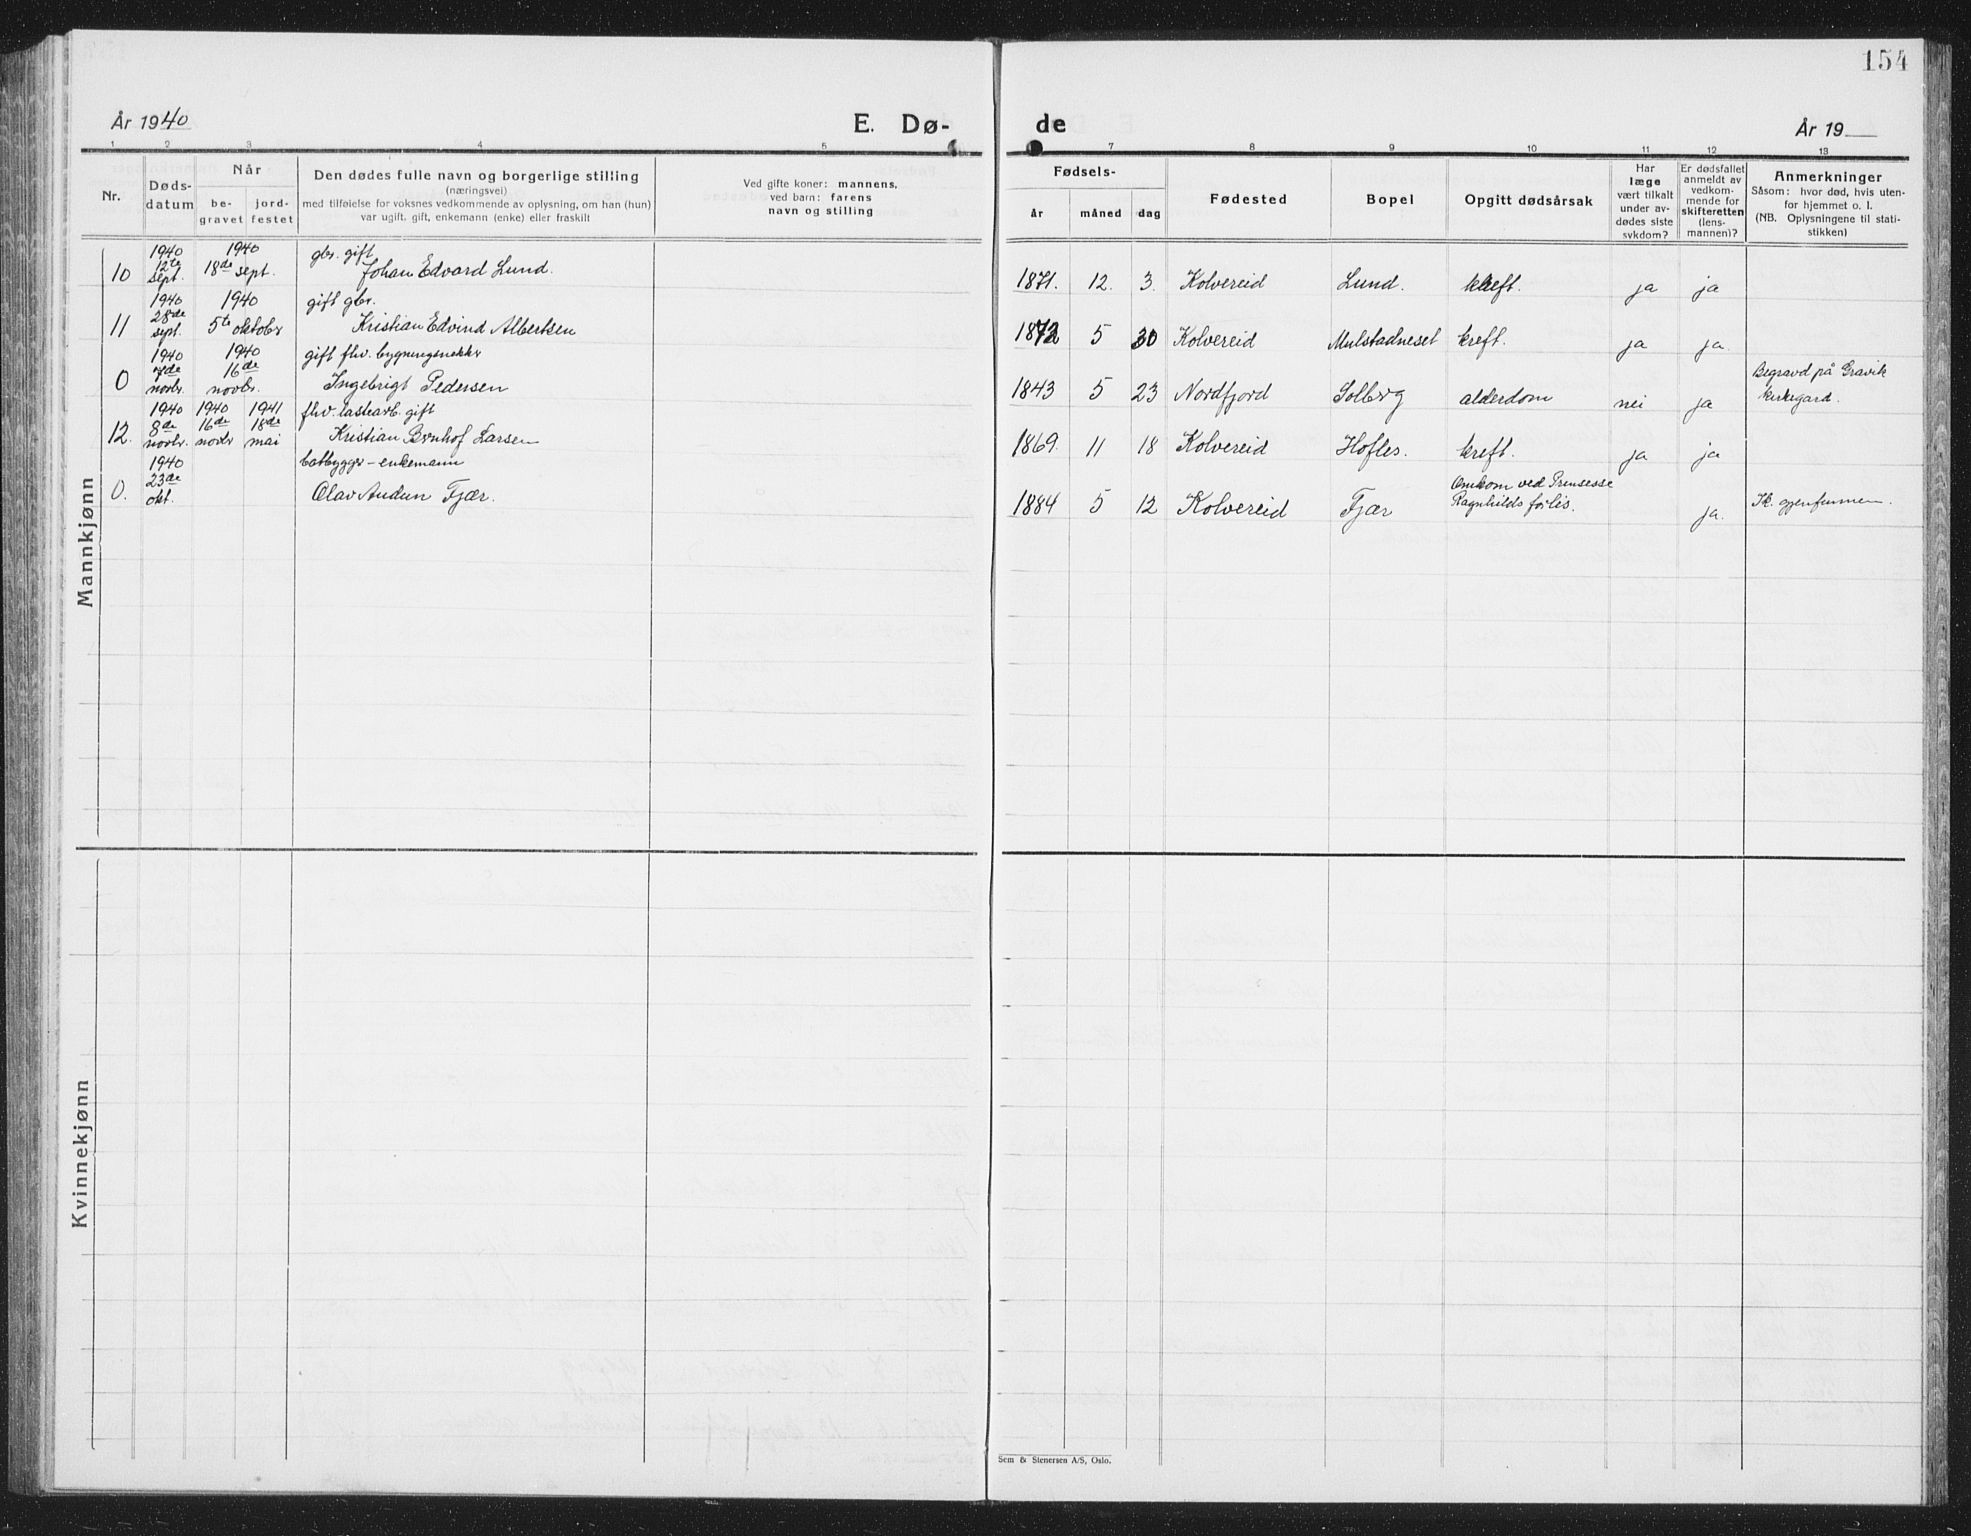 154
År 1940
E. Dø-
de
År 19
1 2 3 4 5 7 8 9 10 11 12 13
Nr.
Døds-
datum
Når
be-
gravet
jord-
festet
Den dødes fulle navn og borgerlige stilling
(næringsvei)
med tilføielse for voksnes vedkommende av oplysning, om han (hun)
var ugift, gift, enkemann (enke) eller fraskilt
Ved gifte koner: mannens,
ved barn: farens
navn og stilling
Fødsels-
år
måned
dag
Fødested
Bopel
Opgitt dødsårsak
Har
læge
vært tilkalt
under av-
dødes siste
sykdom?
Er dødsfallet
anmeldt av
vedkom-
mende for
skifteretten
(lens-
mannen)?
Anmerkninger
Såsom: hvor død, hvis uten-
for hjemmet o. l.
(NB. Oplysningene til stati-
stikken)
Mannkjønn
1940 1940 gbr. gift
10 12te sept. 18de sept. Johan Edvard Lund. 1871. 12. 3. Kolvereid Lund. kreft. ja ja
1940 1940 gift gbr.
11 28de sept. 5te oktober Kristian Edvind Albertsen 1872 5 30 Kolvereid Mulstadneset kreft. ja ja.
1940 1940 gift fhv. bygningsnekker
0 7de novbr. 16de novbr. Ingebrigt Pedersen 1843 5 23 Nordfjord Solberg alderdom nei ja Begravd på Gravik
kirkegard.
1940 1940 1941 fhv. lastearb. gift
12. 8de novbr. 16de novbr 18de mai Kristian Bernhof Larsen 1869. 11 18 Kolvereid Hofles. kreft. ja ja
1940 båtbygger - enkemann
0. 23de okt. Olav Audun Fjær. 1884 5 12 Kolvereid Fjær Omkom ved Prinsesse
Ragnhilds forlis. ja. Ik. gjenfunnen.
Kvinnekjønn
Sem & Stenersen A/S, Oslo.